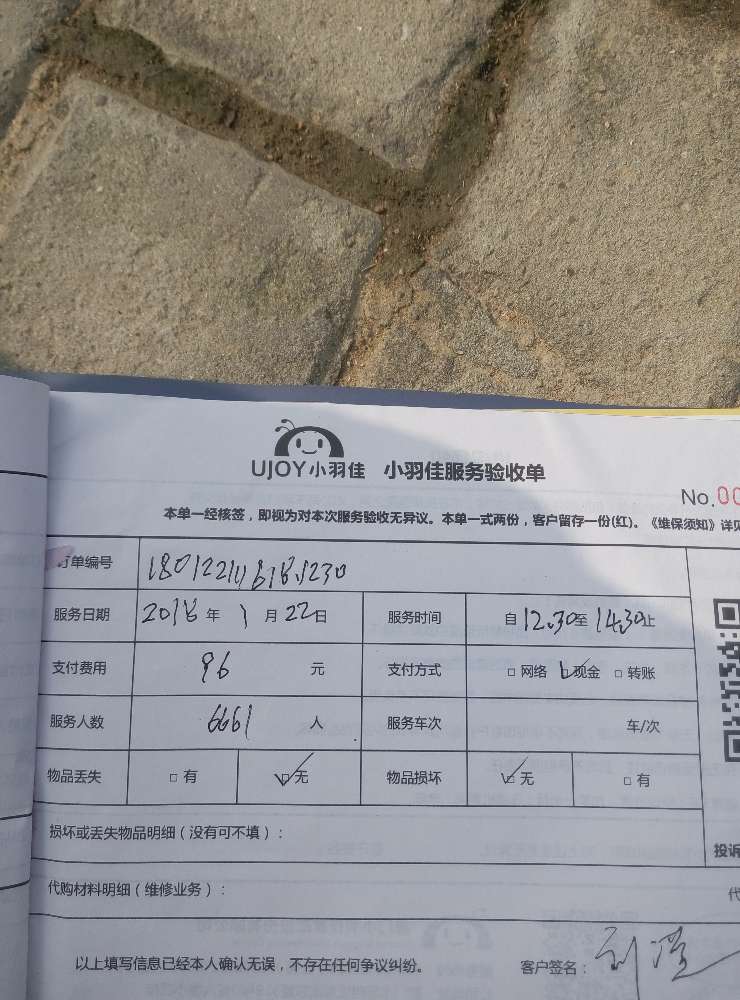 UJOY小羽佳 小羽佳服务验收单
No.00
本单一经核签，即视为对本次服务验收无异议。本单一式两份，客户留存一份(红)。《维保须知》详见
订单编号
服务日期 2018年1月22日 服务时间 自12:30至14:30止
支付费用 96 元 支付方式 □网络 ☑现金 □转账
服务人数 6661 人 服务车次 车/次
物品丢失 □有 ☑无 物品损坏 ☑无 □有
损坏或丢失物品明细（没有可不填）：
投诉
代购材料明细（维修业务）： 代
以上填写信息已经本人确认无误，不存在任何争议纠纷。 客户签名：